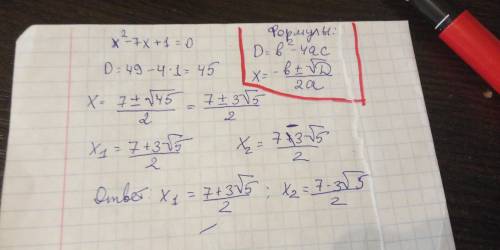 x²-7x+1=0
D=49-4·1=45
x=(7±√45)/2=(7±3√5)/2
x₁=(7+3√5)/2 x₂=(7-3√5)/2
Ответ: x₁=(7+3√5)/2; x₂=(7-3√5)/2
Формулы:
D=b²-4ac
x=(-b±√D)/2a